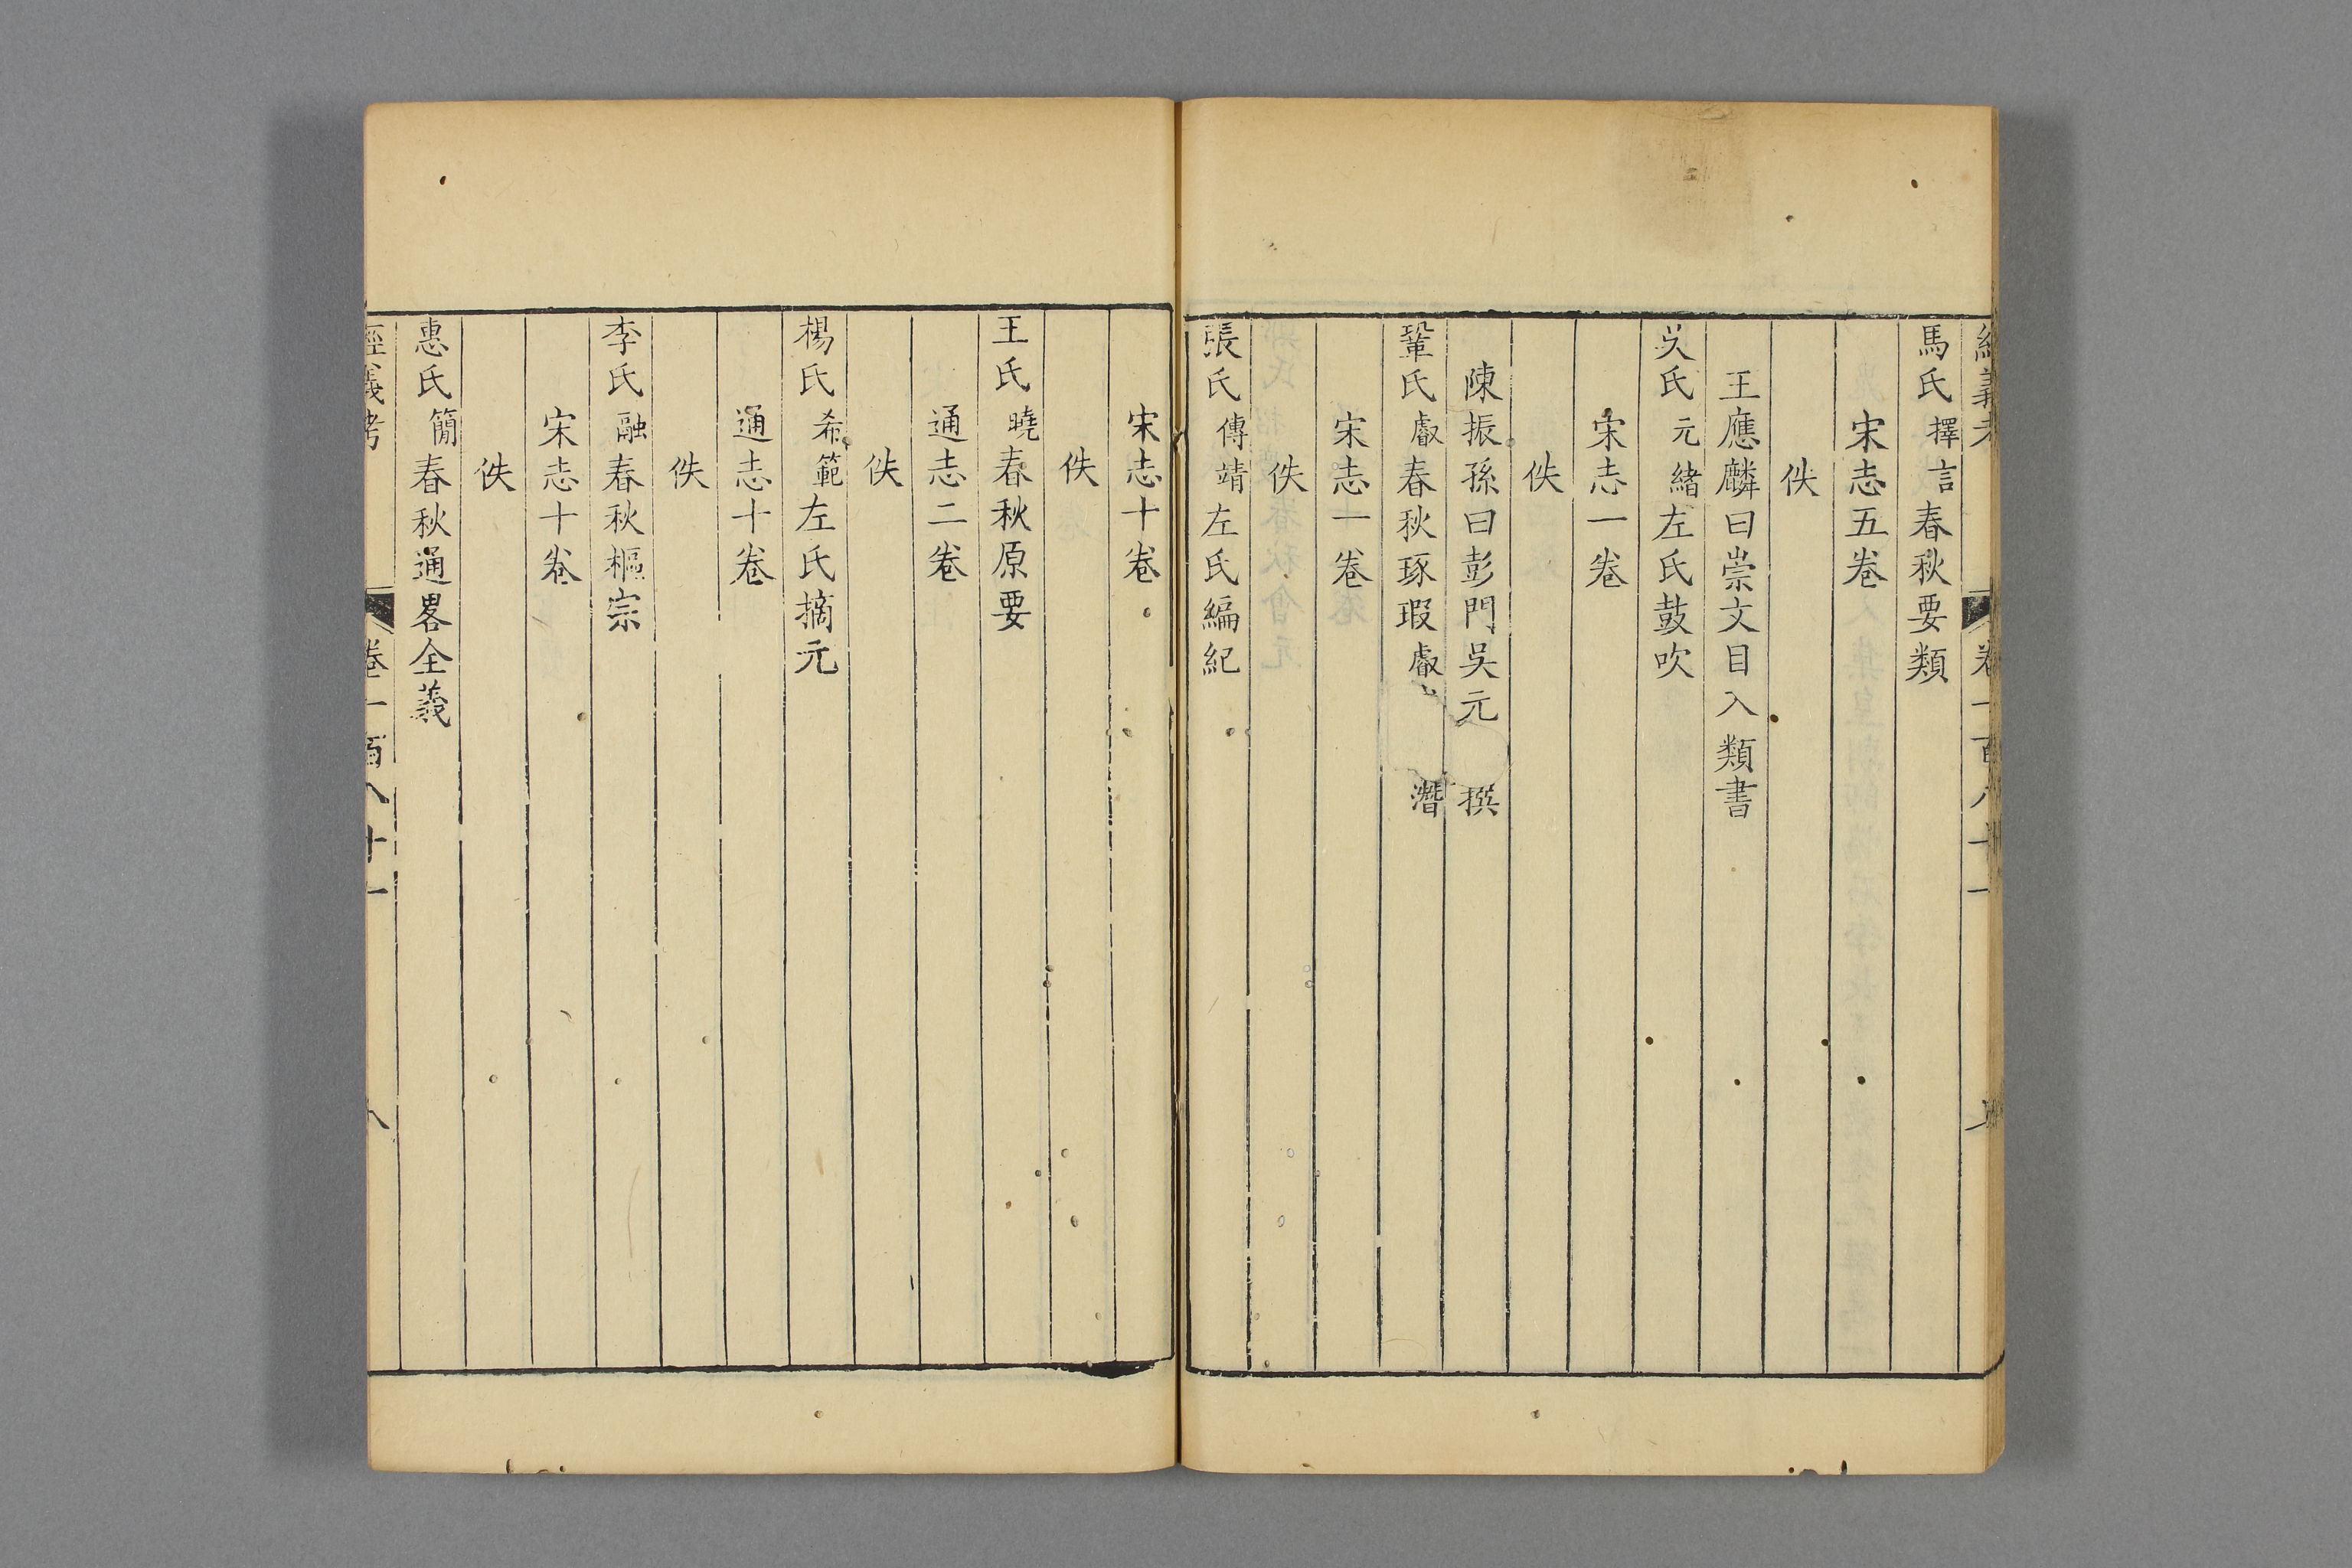 馬氏擇言春秋要類
宋志五卷
佚
王應麟曰崇文目入類書
吳氏元緒左氏鼓吹
宋志一卷
佚
陳振孫曰彭門吳元 撰
鞏氏睿春秋琢瑕睿 潛
宋志一卷
佚
張氏傳靖左氏編紀
宋志十卷
佚
王氏曉春秋原要
通志二卷
佚
楊氏希範左氏摘元
通志十卷
佚
李氏融春秋樞宗
宋志十卷
佚
惠氏簡春秋通畧全義
經義考 卷一百八十一 八